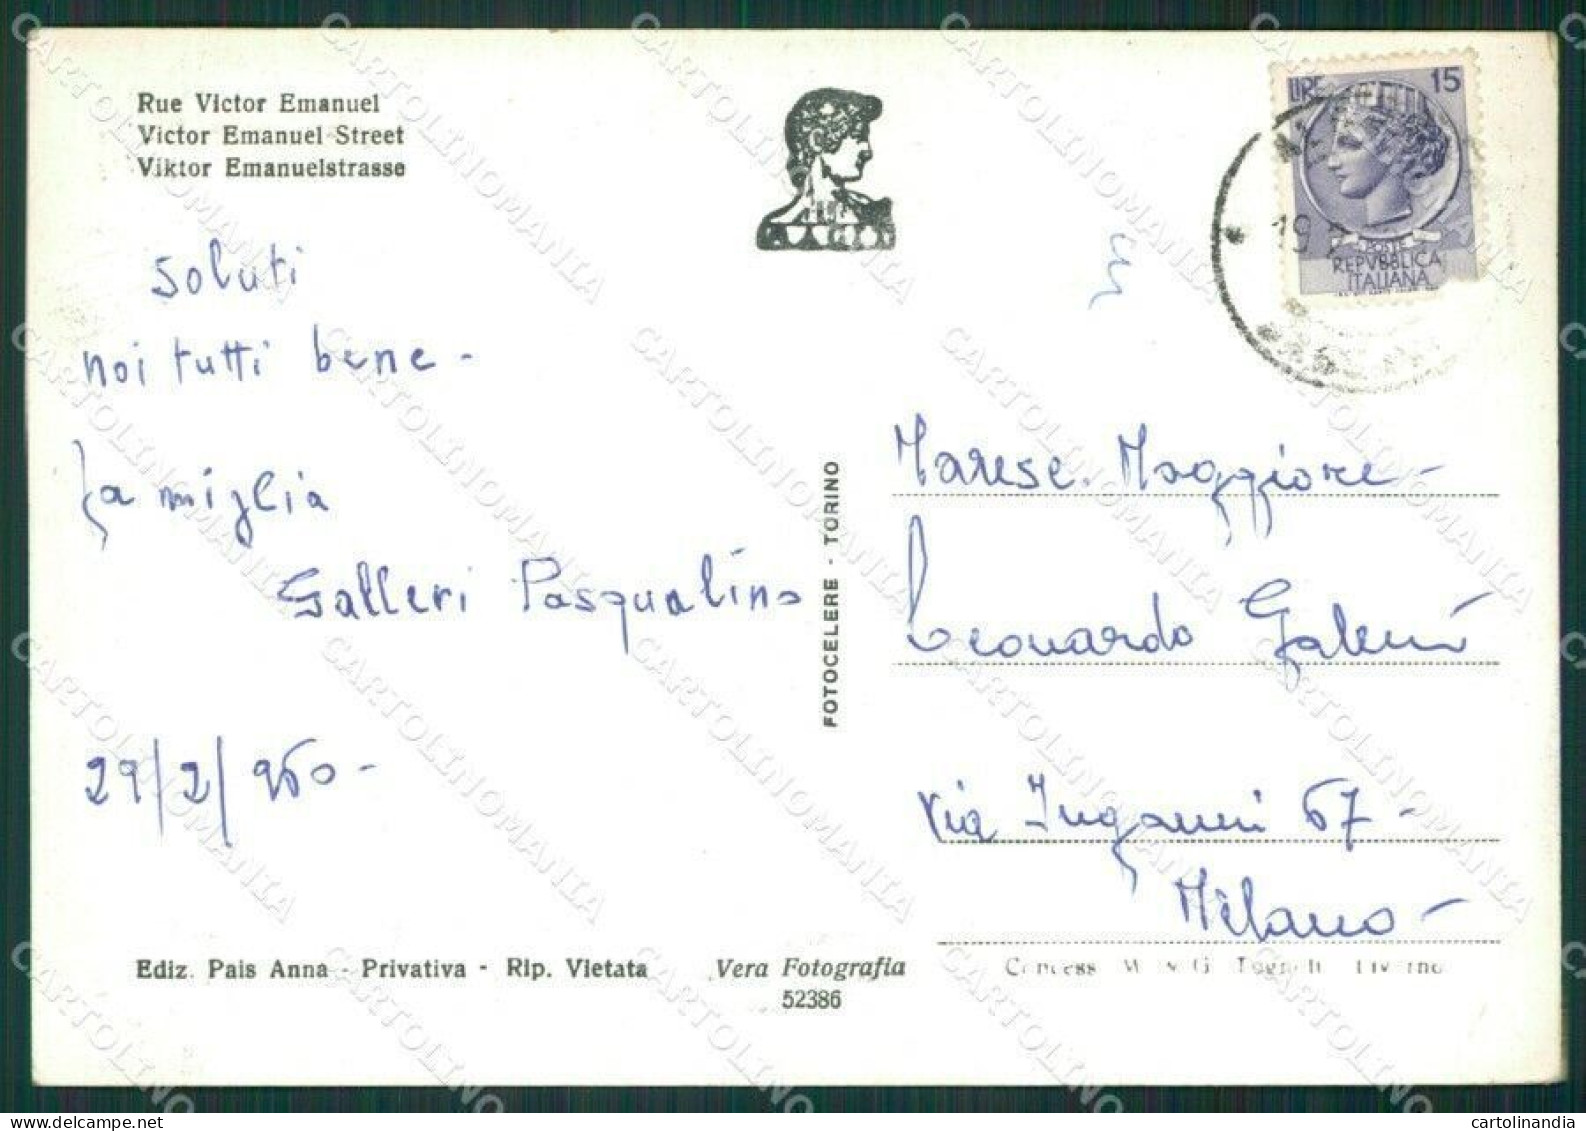 Rue Victor Emanuel
Victor Emanuel Street
Viktor Emanuelstrasse
Soluti
noi tutti bene -
famiglia
Galleri Pasqualino
29/2/960 -
FOTOCELERE - TORINO
LIRE 15
POSTE
REPVBBLICA
ITALIANA
19
Marese. Maggiore -
Leonardo
via Inganni 67 -
Milano -
Ediz. Pais Anna - Privativa - Rip. Vietata
Vera Fotografia
52386
CARTOLINOMANIA
cartolinandia